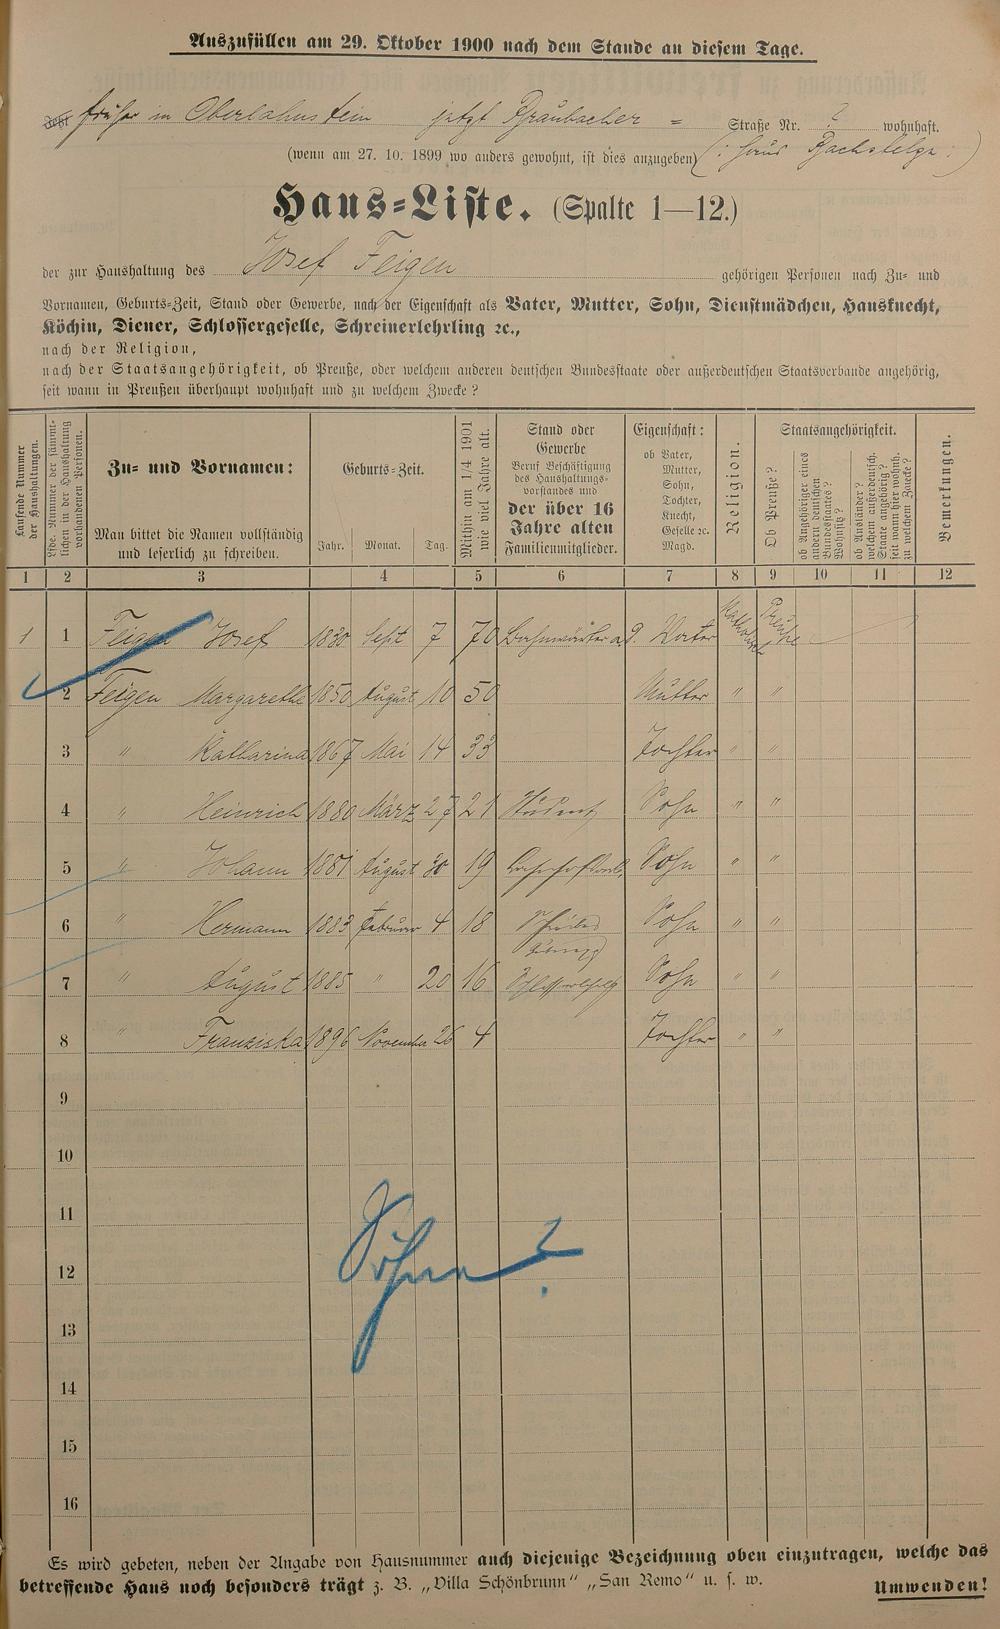 Auszufüllen am 29. Oktober 1900 nach dem Stande an diesem Tage.
früher in Oberlahnstein jetzt Braubacher = Straße Nr. ? wohnhaft.
(wenn am 27. 10. 1899 wo anders gewohnt, ist dies anzugeben) (: Haus Bachstelze :)
Haus=Liste. (Spalte 1—12.)
der zur Haushaltung des Josef Feigen gehörigen Personen nach Zu= und
Vornamen, Geburts=Zeit, Stand oder Gewerbe, nach der Eigenschaft als Vater, Mutter, Sohn, Dienstmädchen, Hausknecht,
Köchin, Diener, Schlossergeselle, Schreinerlehrling ꝛc.,
nach der Religion,
nach der Staatsangehörigkeit, ob Preuße, oder welchem anderen deutschen Bundesstaate oder außerdeutschen Staatsverbande angehörig,
seit wann in Preußen überhaupt wohnhaft und zu welchem Zwecke?
Laufende Nummer
der Haushaltungen.
Lfde. Nummer der sämmt-
lichen in der Haushaltung
vorhandenen Personen.
Zu= und Vornamen:
Man bittet die Namen vollständig
und leserlich zu schreiben.
Geburts=Zeit.
Jahr. Monat. Tag.
Mithin am 1/4 1901
wie viel Jahre alt.
Stand oder
Gewerbe
Beruf Beschäftigung
des Haushaltungs-
vorstandes und
der über 16
Jahre alten
Familienmitglieder.
Eigenschaft:
ob Vater,
Mutter,
Sohn,
Tochter,
Knecht,
Geselle ꝛc.
Magd.
Religion.
Staatsangehörigkeit.
Ob Preuße?
ob Angehöriger eines
anderen deutschen
Bundesstaates?
Wohnsitz?
ob Ausländer?
welchem außerdeutsch.
Staate angehörig?
seit wann hier wohnh.
zu welchem Zwecke?
Bemerkungen.
1 2 3 4 5 6 7 8 9 10 11 12
1 1 Feigen Josef 1830 Sept 7 70 Bahnwärter a.D. Vater Katholisch Preuße
2 Feigen Margarethe 1850 August 10 50 Mutter " "
3 " Katharina 1867 Mai 14 33 Tochter " "
4 " Heinrich 1880 März 27 21 Student Sohn " "
5 " Johann 1881 August 30 19 Sohn " "
6 " Hermann 1883 Februar 4 18 Sohn " "
7 " August 1885 " 20 16 Schlosserlehrlg Sohn " "
8 " Franziska 1896 November 26 4 Tochter " "
9
10
11
12
Söhne?
13
14
15
16
Es wird gebeten, neben der Angabe von Hausnummer auch diejenige Bezeichnung oben einzutragen, welche das
betreffende Haus noch besonders trägt z. B. „Villa Schönbrunn" „San Remo" u. s. w. Umwenden!